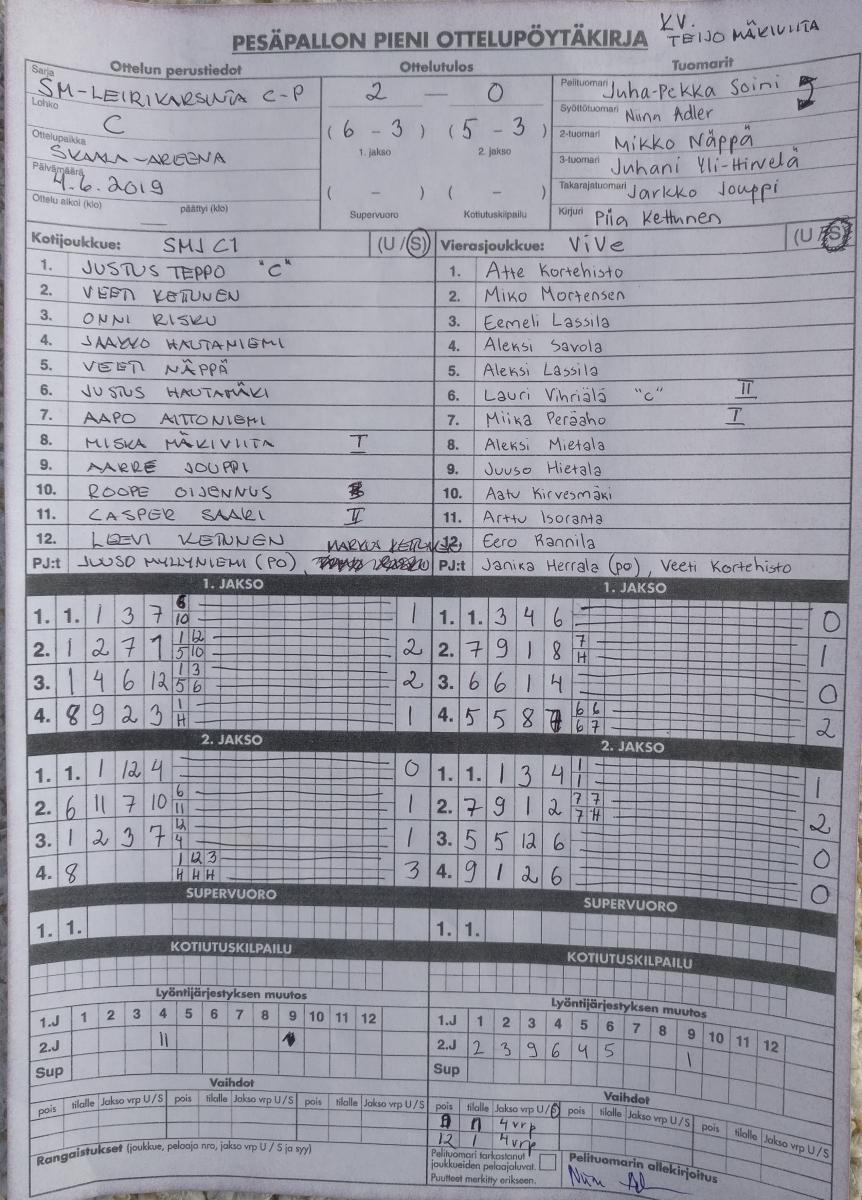 K.V. TEIJO MÄKIVIITA
PESÄPALLON PIENI OTTELUPÖYTÄKIRJA
Ottelun perustiedot
Sarja SM-LEIRIKARSINTA C-P
Lohko C
Ottelupaikka SKAALA-AREENA
Päivämäärä 4.6.2019
Ottelu alkoi (klo) päättyi (klo)
Ottelutulos
2 — 0
(6 - 3) (5 - 3)
1. jakso 2. jakso
( - ) ( - )
Supervuoro Kotiutuskilpailu
Tuomarit
Pelituomari Juha-Pekka Soini
Syöttötuomari Niinn Adler
2-tuomari Mikko Näppä
3-tuomari Juhani Yli-Hirvelä
Takarajatuomari Jarkko Jouppi
Kirjuri Piia Kettunen
Kotijoukkue: SMJ C1 (U/S)
1. JUSTUS TEPPO "C"
2. VEETI KETTUNEN
3. ONNI RISKU
4. JAAKKO HAUTANIEMI
5. VEETI NÄPPÄ
6. JUSTUS HAUTAMÄKI
7. AAPO AITTONIEMI
8. MISKA MÄKIVIITA I
9. AARRE JOUPPI
10. ROOPE OIJENNUS
11. CASPER SAARI II
12. LEEVI KETTUNEN
PJ:t JUUSO MYLLYNIEMI (PO), MARKUS KETTUNEN
Vierasjoukkue: ViVe (U/S)
1. Atte Kortehisto
2. Miko Mortensen
3. Eemeli Lassila
4. Aleksi Savola
5. Aleksi Lassila
6. Lauri Vihriälä "C" II
7. Miika Peräaho I
8. Aleksi Mietala
9. Juuso Hietala
10. Aatu Kirvesmäki
11. Arttu Isoranta
12. Eero Rannila
PJ:t Janika Herrala (po), Veeti Kortehisto
1. JAKSO
1. 1. 1 3 7 6 10 1
2. 1 2 7 1 1 12 5 10 2
3. 1 4 6 12 1 3 5 6 2
4. 8 9 2 3 1 H 1
2. JAKSO
1. 1. 1 12 4 0
2. 6 11 7 10 6 11 1
3. 1 2 3 7 12 4 1
4. 8 1 12 3 H H H 3
SUPERVUORO
1. 1.
KOTIUTUSKILPAILU
Lyöntijärjestyksen muutos
1.J 1 2 3 4 5 6 7 8 9 10 11 12
2.J 11
Sup
Vaihdot
pois tilalle Jakso vrp U/S pois tilalle Jakso vrp U/S pois tilalle Jakso vrp U/S
Rangaistukset (joukkue, pelaaja nro, jakso vrp U / S ja syy)
1. JAKSO
1. 1. 3 4 6 0
2. 7 9 1 8 7 H 1
3. 6 6 1 4 0
4. 5 5 8 6 6 6 7 2
2. JAKSO
1. 1. 1 3 4 1 1 1
2. 7 9 1 2 7 7 7 H 2
3. 5 5 12 6 0
4. 9 1 2 6 0
SUPERVUORO
1. 1.
KOTIUTUSKILPAILU
Lyöntijärjestyksen muutos
1.J 1 2 3 4 5 6 7 8 9 10 11 12
2.J 2 3 9 6 4 5 1
Sup
Vaihdot
pois tilalle Jakso vrp U/S pois tilalle Jakso vrp U/S pois tilalle Jakso vrp U/S
4 vrp
12 1 4 vrp
Pelituomari tarkastanut joukkueiden pelaajaluvat.
Puutteet merkitty erikseen.
Pelituomarin allekirjoitus